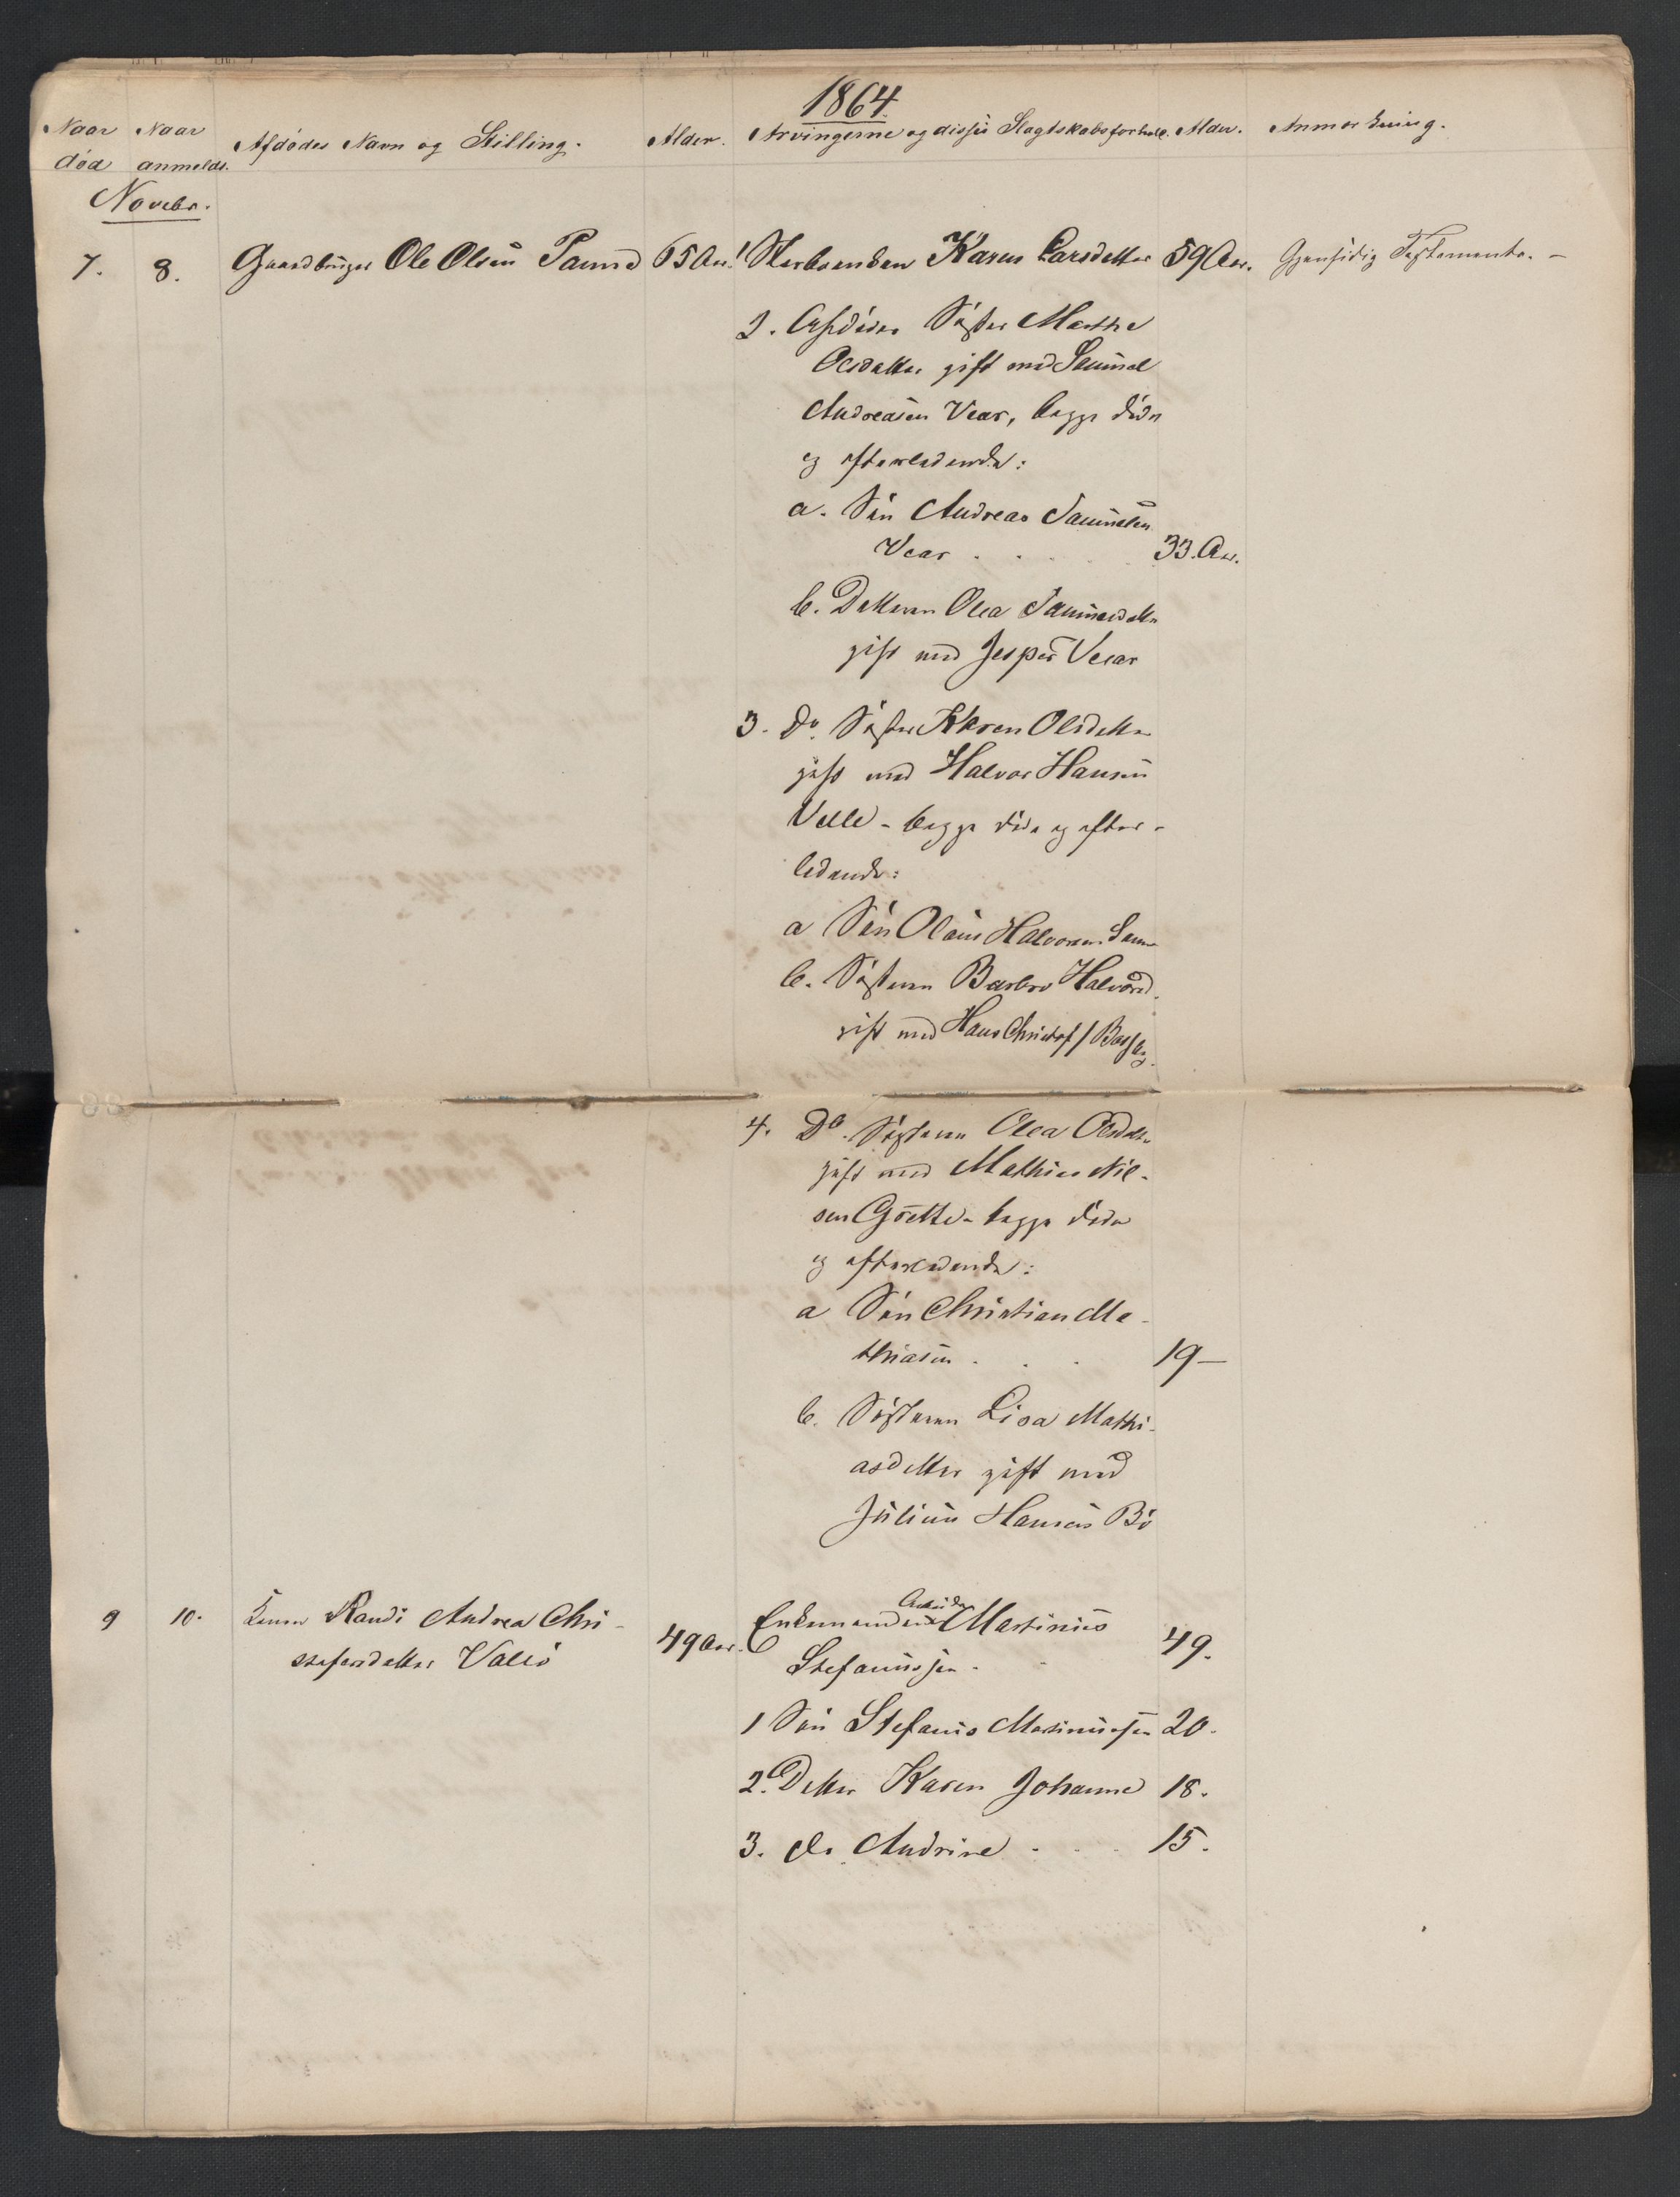 1864.
Naar død
Naar anmeldt.
Afdødes Navn og Stilling.
Alder.
Arvingerne og disses Slægtskabsforhold.
Alder.
Anmærkning.
Novebr.
7. 8. Gaardbruger Ole Olsen 65 Aar. 1 Sterboenken Karen Larsdatter 59 Aar. Gjensidig Testamente. –
2. Afdødes Søster Marthe
Olsdatter gift med Samuel
Andreasen Vear, begge døde
og efterladende:
a. Søn Andreas Samuelsen
Vear . . . 33. Aar.
b. Datteren Olea Samuelsdatter
gift med Jesper Vear
3. Do. Søster Karen Olsdatter
gift med Halvor Hansen
Velle – begge døde og efter-
ladende:
a Søn Olaus Halvorsen
b. Søsteren Barbro Halvorsd.
gift med Hans Christof
4. Do. Søsteren Olea Olsdatter
gift med Mathias Niel-
sen – begge døde
og efterladende:
a Søn Christian Ma-
thiasen . . . 19 –
b. Søsteren Lisa Mathi-
asdatter gift med
Julius Hansen Bø
9 10. Konen Randi Andrea Chri-
stofersdatter Valø 49 Aar. Enkemanden Arbeider Martinius
Stefanussen . . 49.
1 Søn Stefanus Martiniussen 20.
2. Datter Karen Johanne 18.
3. do. Andrine . . . 15.